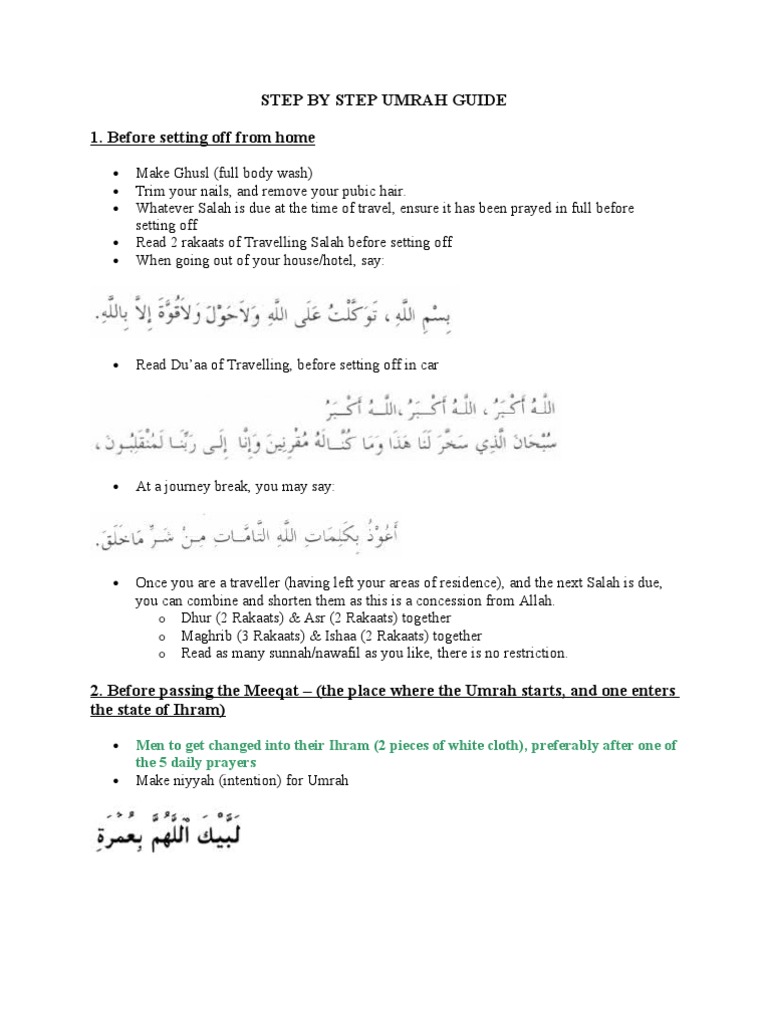 STEP BY STEP UMRAH GUIDE
1. Before setting off from home
• Make Ghusl (full body wash)
• Trim your nails, and remove your pubic hair.
• Whatever Salah is due at the time of travel, ensure it has been prayed in full before
setting off
• Read 2 rakaats of Travelling Salah before setting off
• When going out of your house/hotel, say:
بِسْمِ اللَّهِ ، تَوَكَّلْتُ عَلَى اللَّهِ وَلاَحَوْلَ وَلاَقُوَّةَ إِلاَّ بِاللَّهِ.
• Read Du’aa of Travelling, before setting off in car
اللَّـهُ أَكْبَرُ ، اللَّـهُ أَكْـبَرُ ،اللَّـهُ أَكْـبَرُ
سُبْحَانَ الَّذِي سَخَّرَ لَنَا هَذَا وَمَا كُنَّـالَهُ مُقْرِنِينَ وَإِنَّا إِلَـى رَبِّنَـا لَمُنْقَلِبُـونَ ،
• At a journey break, you may say:
أَعُوْذُ بِكَلِمَاتِ اللَّهِ التَّامَّـاتِ مِـنْ شَـرِّ مَاخَلَقَ.
• Once you are a traveller (having left your areas of residence), and the next Salah is due,
you can combine and shorten them as this is a concession from Allah.
o Dhur (2 Rakaats) & Asr (2 Rakaats) together
o Maghrib (3 Rakaats) & Ishaa (2 Rakaats) together
o Read as many sunnah/nawafil as you like, there is no restriction.
2. Before passing the Meeqat – (the place where the Umrah starts, and one enters
the state of Ihram)
• Men to get changed into their Ihram (2 pieces of white cloth), preferably after one of
the 5 daily prayers
• Make niyyah (intention) for Umrah
لَبَّيْكَ ٱللَّهُمَّ بِعُمْرَةٍ